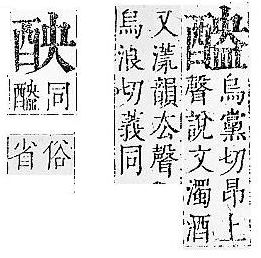 醠
烏黨切昂上
聲說文濁酒
又漾韻厺聲
烏浪切義同
䣐
同醠
俗省